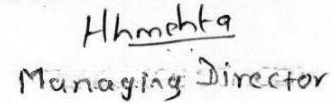 Hhmehta
Managing Director